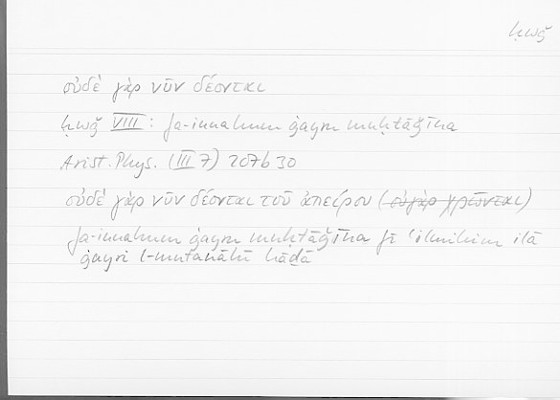 ḥwǧ
οὐδὲ γὰρ νῦν δέονται
ḥwǧ VIII: fa-innahum ġayru muḥtāǧīna
Arist. Phys. (III 7) 207b30
οὐδὲ γὰρ νῦν δέονται τοῦ ἀπείρου (οὐ γὰρ χρῶνται)
fa-innahum ġayru muḥtāǧīna fī ʿilmihim ilā
ġayri l-mutanāhī hāḏā